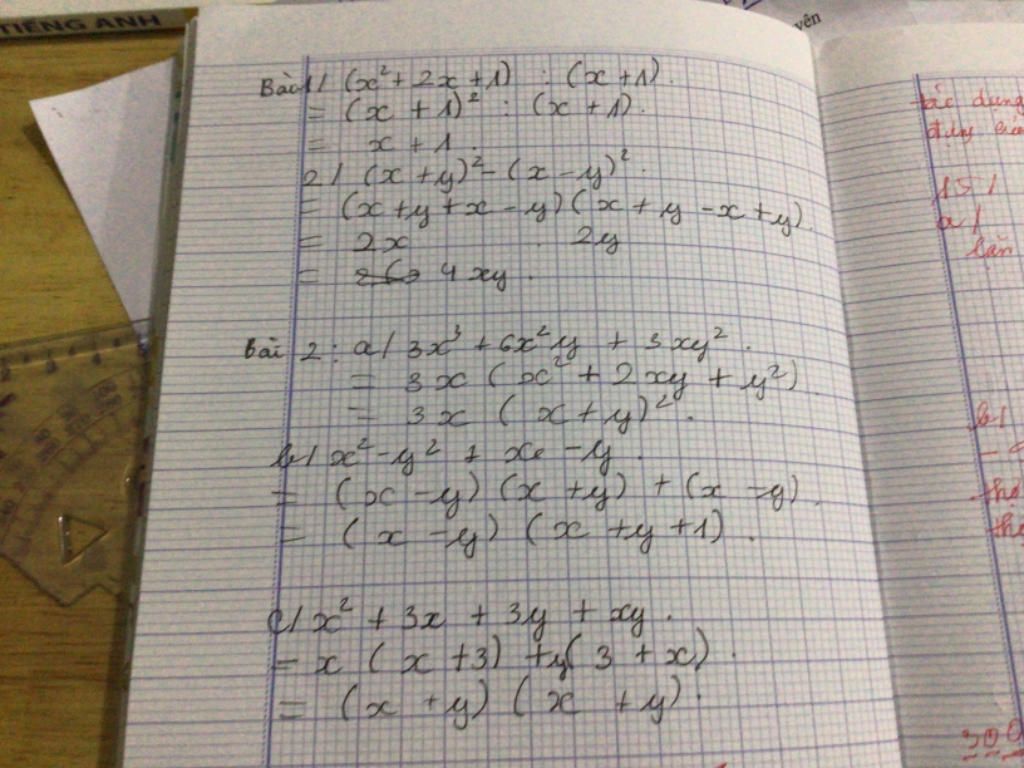 TIẾNG ANH
yên
Bài 1/ (x² + 2x + 1) : (x + 1).
= (x + 1)² : (x + 1).
= x + 1.
2/ (x + y)² - (x - y)².
= (x + y + x - y) (x + y - x + y).
= 2x . 2y
= 4xy.
Bài 2 : a/ 3x³ + 6x²y + 3xy².
= 3x (x² + 2xy + y²)
= 3x (x + y)².
b/ x² - y² + x - y.
= (x - y) (x + y) + (x - y).
= (x - y) (x + y + 1).
c/ x² + 3x + 3y + xy.
= x (x + 3) + y (3 + x).
= (x + y) (x + y).
tác dụng
15/
a/
lần
b/